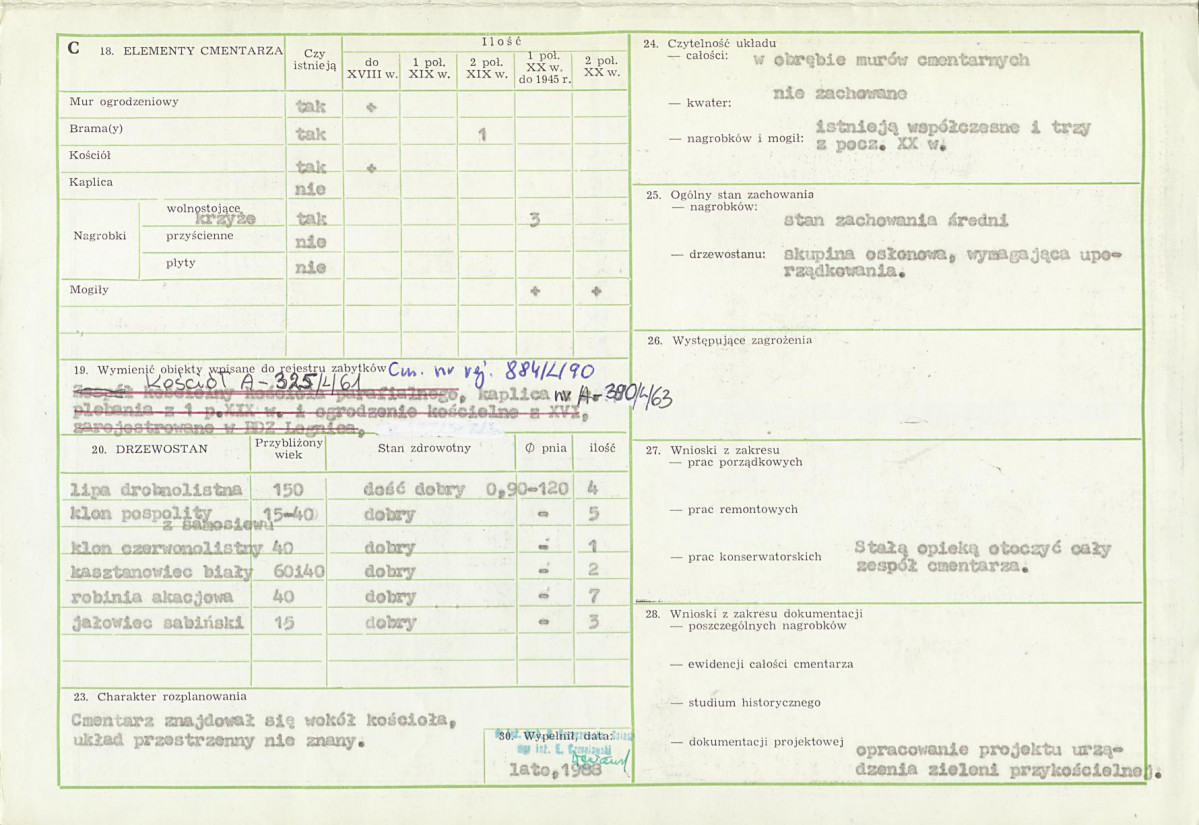 C 18. ELEMENTY CMENTARZA
Czy istnieją
Ilość
do XVIII w.
1 poł. XIX w.
2 poł. XIX w.
1 poł. XX w. do 1945 r.
2 poł. XX w.
Mur ogrodzeniowy tak +
Brama(y) tak 1
Kościół tak +
Kaplica nie
Nagrobki
wolnostojące krzyże tak 3
przyścienne nie
płyty nie
Mogiły + +
19. Wymienić obiekty wpisane do rejestru zabytków Cm. nr rej. 884/L/90
Kościół A-325/L/61
Zespół kościelny kościoła parafialnego, kaplica nr A-380/L/63
plebania z 1 p.XIX w. i ogrodzenie kościelne z XVI,
zarejestrowane w Legnica,
20. DRZEWOSTAN Przybliżony wiek Stan zdrowotny Ø pnia ilość
lipa drobnolistna 150 dość dobry 0,90-120 4
klon pospolity z samosiewu 15-40 dobry - 5
klon czerwonolistny 40 dobry - 1
kasztanowiec biały 60i40 dobry - 2
robinia akacjowa 40 dobry - 7
jałowiec sabiński 15 dobry - 3
23. Charakter rozplanowania
Cmentarz znajdował się wokół kościoła,
układ przestrzenny nie znany.
30. Wypełnił, data:
mgr inż. E.
lato, 1988
24. Czytelność układu
— całości: w obrębie murów cmentarnych
— kwater: nie zachowane
— nagrobków i mogił: istnieją współczesne i trzy
z pocz. XX w.
25. Ogólny stan zachowania
— nagrobków:
stan zachowania średni
— drzewostanu: skupina osłonowa, wymagająca upo-
rządkowania.
26. Występujące zagrożenia
27. Wnioski z zakresu
— prac porządkowych
— prac remontowych
— prac konserwatorskich Stałą opieką otoczyć cały
zespół cmentarza.
28. Wnioski z zakresu dokumentacji
— poszczególnych nagrobków
— ewidencji całości cmentarza
— studium historycznego
— dokumentacji projektowej opracowanie projektu urzą-
dzenia zieleni przykościelnej.